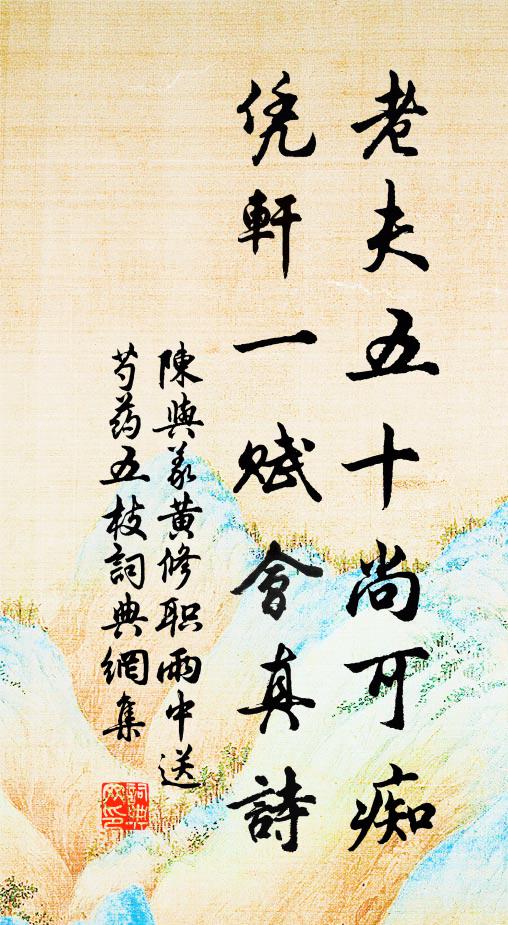 老夫五十尚可痴
凭軒一賦會真詩
陳與義黄修职雨中送
芍药五枝詞典網集